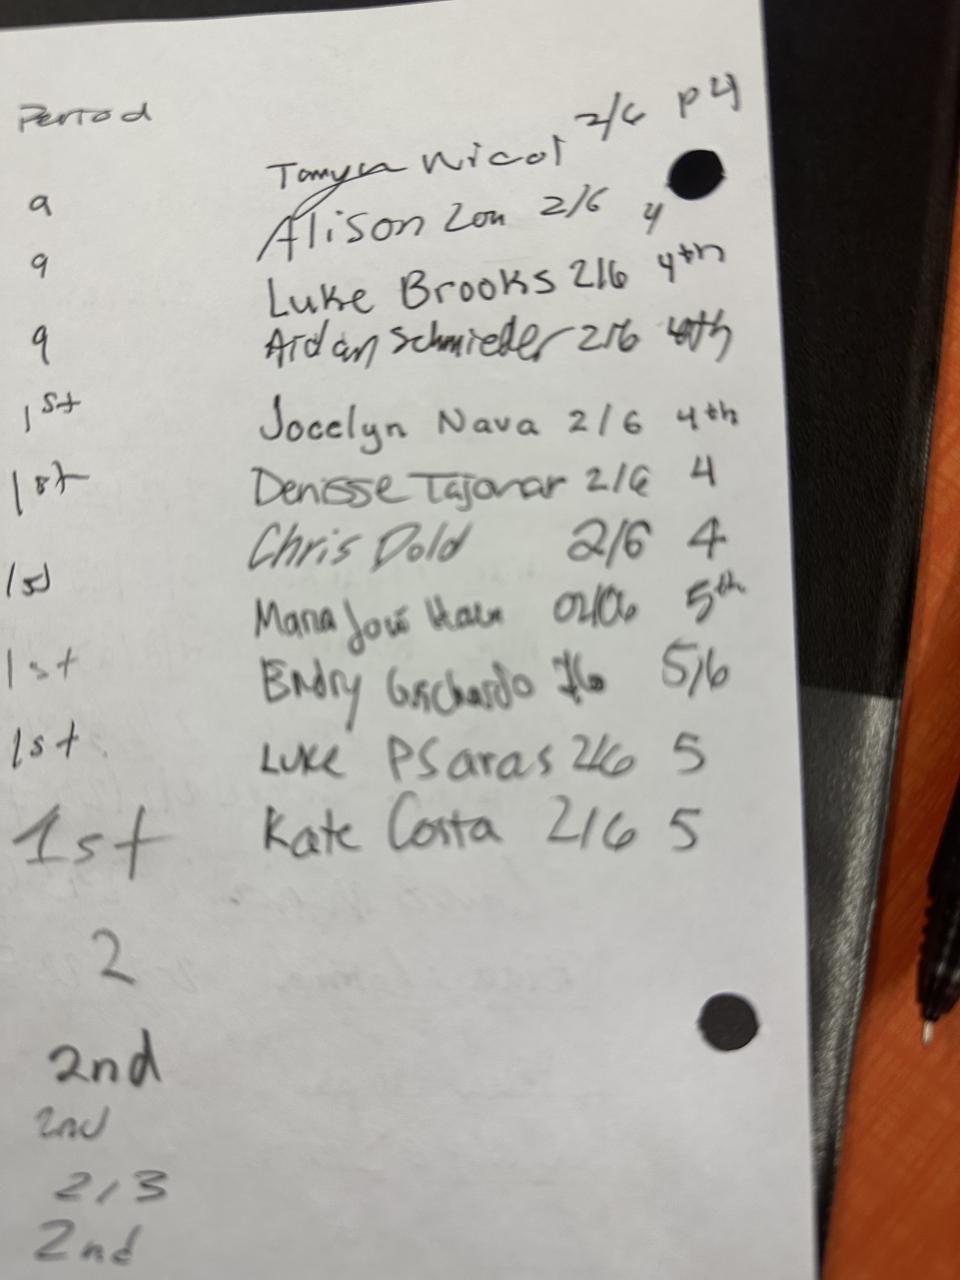 Period
Tamyra Nicol 2/6 P4
9
Alison Zou 2/6 4
9
Luke Brooks 2/6 4th
9
Aidan Schmieder 2/6 4th
1st
Jocelyn Nava 2/6 4th
1st
Denisse 2/6 4
Chris Dold 2/6 4
1st
Maria José 5th
1st
Endry Guichardo 5/6
1st
Luke PSaras 2/6 5
1st
Kate Costa 2/6 5
2
2nd
2nd
2/3
2nd